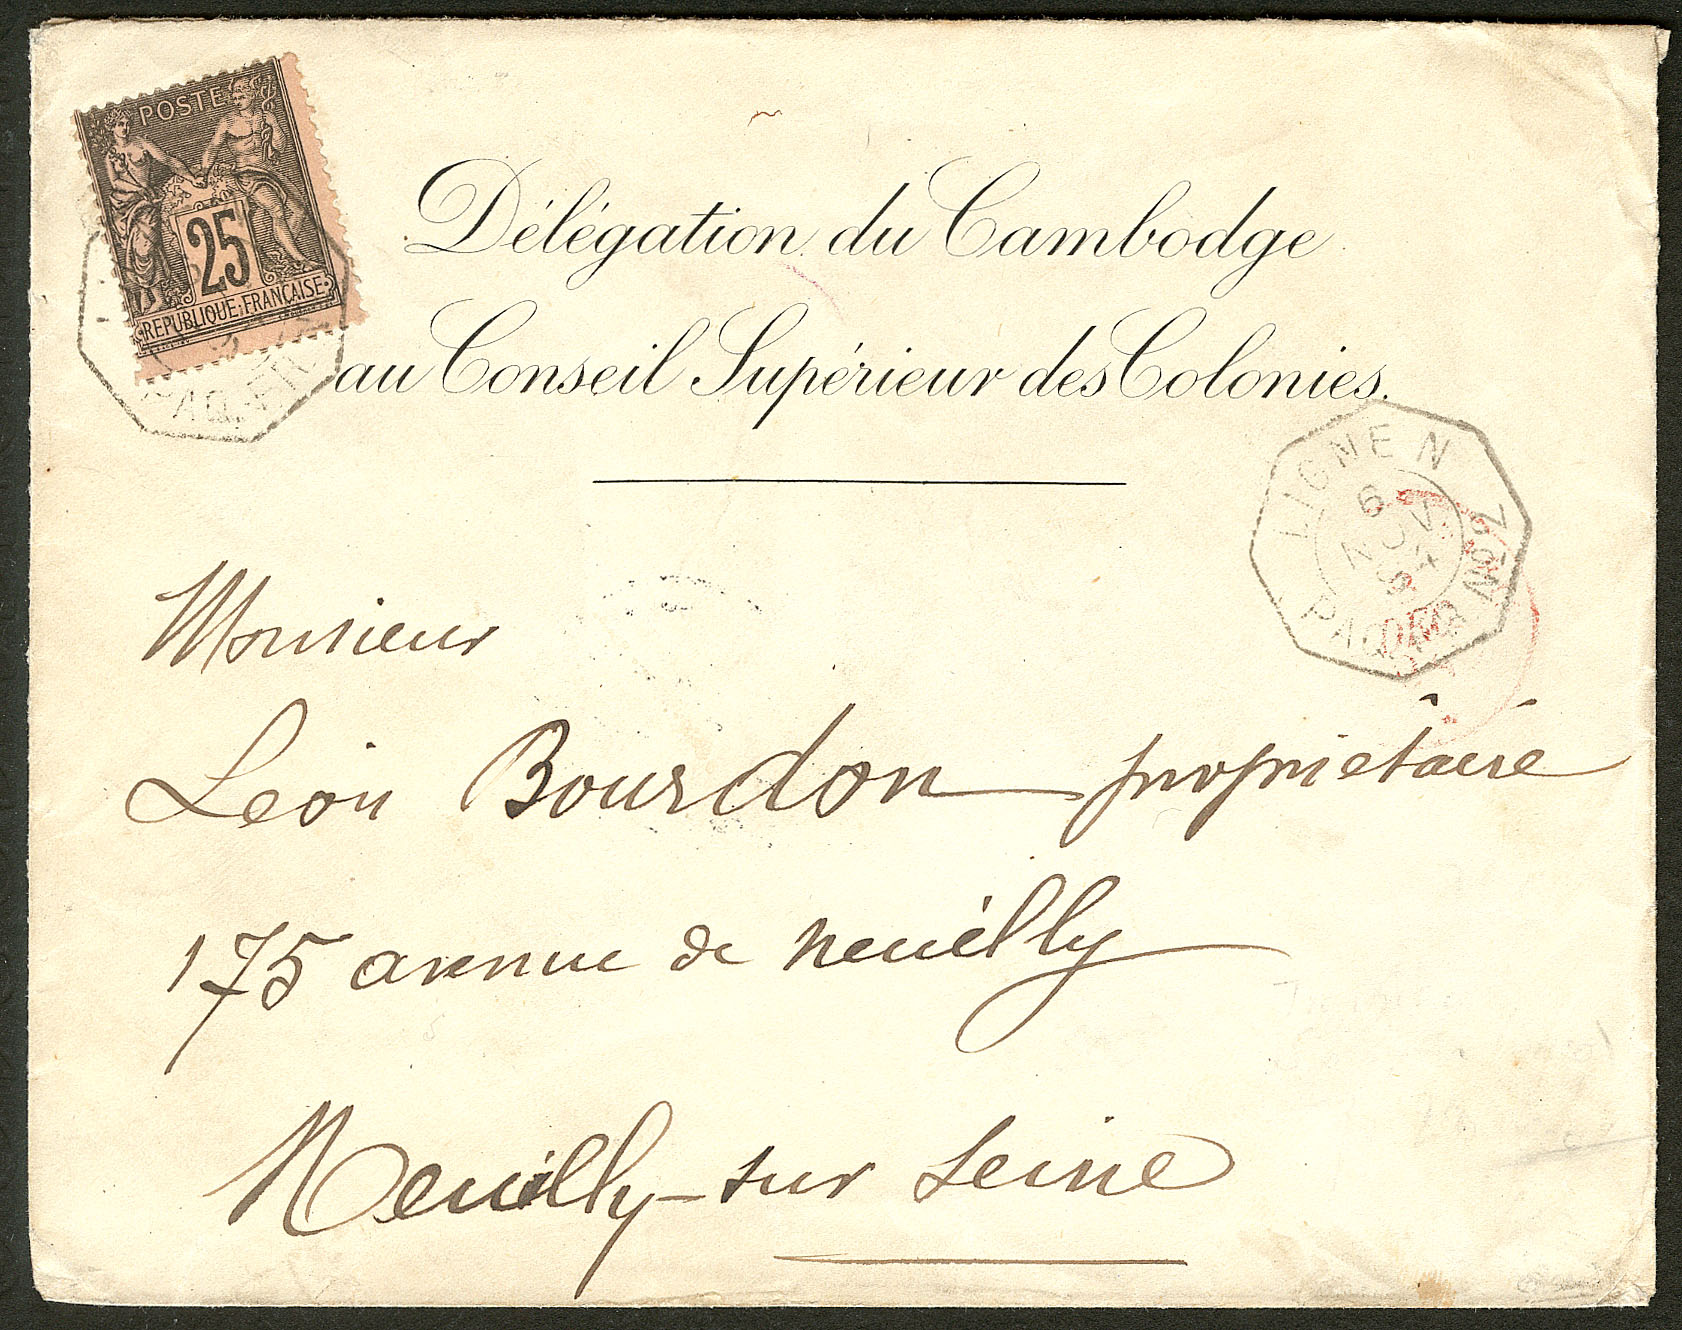 POSTE
25
REPUBLIQUE FRANÇAISE
Délégation du Cambodge
au Conseil Supérieur des Colonies.
LIGNE N
6
NOV
94
PAQ. FR. Nº 2
Monsieur
Léon Bourdon propriétaire
175 avenue de Neuilly
Neuilly-sur Seine